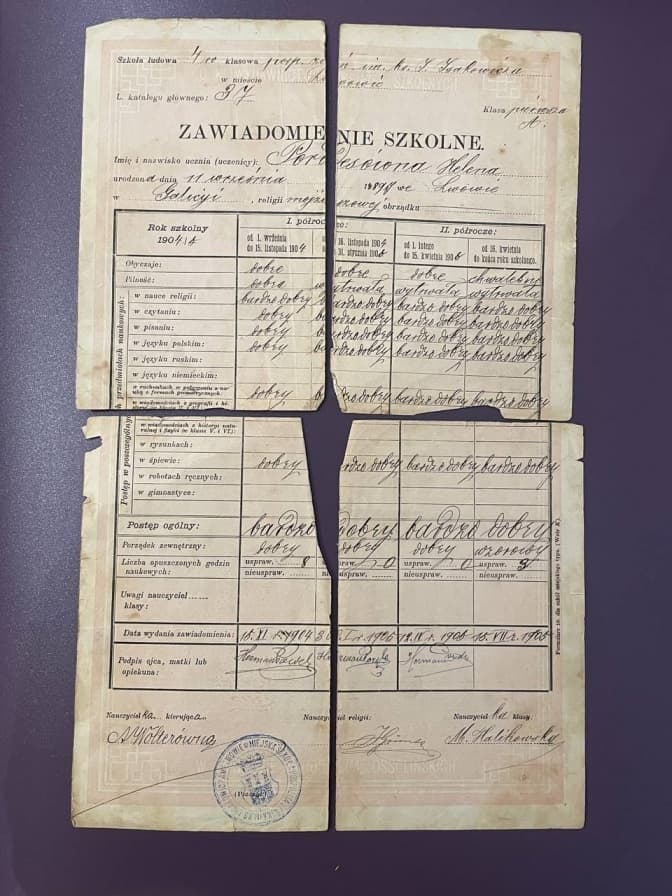 Szkoła ludowa 4 ro klasowa posp. im. ks. I. Isakowicza
w mieście Lwowie
L. katalogu głównego: 37
Klasa pierwsza
A.
ZAWIADOMIENIE SZKOLNE.
Imię i nazwisko ucznia (uczenicy): Helena
urodzona dnia 11 września 189 we Lwowie
w Galicyi, religii mojżeszowej obrządku
Rok szkolny 1904/5
I. półrocze: II. półrocze:
od 1. września do 15. listopada 1904 od 16. listopada 1904 do 31. stycznia 1905 od 1. lutego do 15. kwietnia 1905 od 16. kwietnia do końca roku szkolnego.
Obyczaje: dobre dobre dobre chwalebne
Pilność: dobra wytrwała wytrwała wytrwała
Postęp w poszczególnych przedmiotach naukowych:
w nauce religii: bardzo dobry bardzo dobry bardzo dobry bardzo dobry
w czytaniu: dobry bardzo dobry bardzo dobry bardzo dobry
w pisaniu: dobry bardzo dobry bardzo dobry bardzo dobry
w języku polskim: dobry bardzo dobry bardzo dobry bardzo dobry
w języku ruskim:
w języku niemieckim:
w rachunkach w połączeniu z nauką o formach geometrycznych: dobry bardzo dobry bardzo dobry bardzo dobry
w wiadomościach z geografii i historyi
w wiadomościach z historyi naturalnej i fizyki (w klasie V. i VI.):
w rysunkach:
w śpiewie: dobry bardzo dobry bardzo dobry bardzo dobry
w robotach ręcznych:
w gimnastyce:
Postęp ogólny: bardzo dobry bardzo dobry
Porządek zewnętrzny: dobry dobry dobry wzorowy
Liczba opuszczonych godzin naukowych: uspraw. 8 0 uspraw. 0 uspraw. 3
nieuspraw. nieuspraw. nieuspraw. nieuspraw.
Uwagi nauczyciel...... klasy:
Data wydania zawiadomienia: 15.XI. 1904 I. r. 1905 r. 1905 15. VII r. 1905
Podpis ojca, matki lub opiekuna: Herman Herman Herman
Formularz 10. dla szkół miejskiego typu. (Wzór K.)
Nauczycielka kierująca Nauczyciel religii: Nauczycielka klasy:
A Wolterówna M. Halikowska
(Pieczęć)